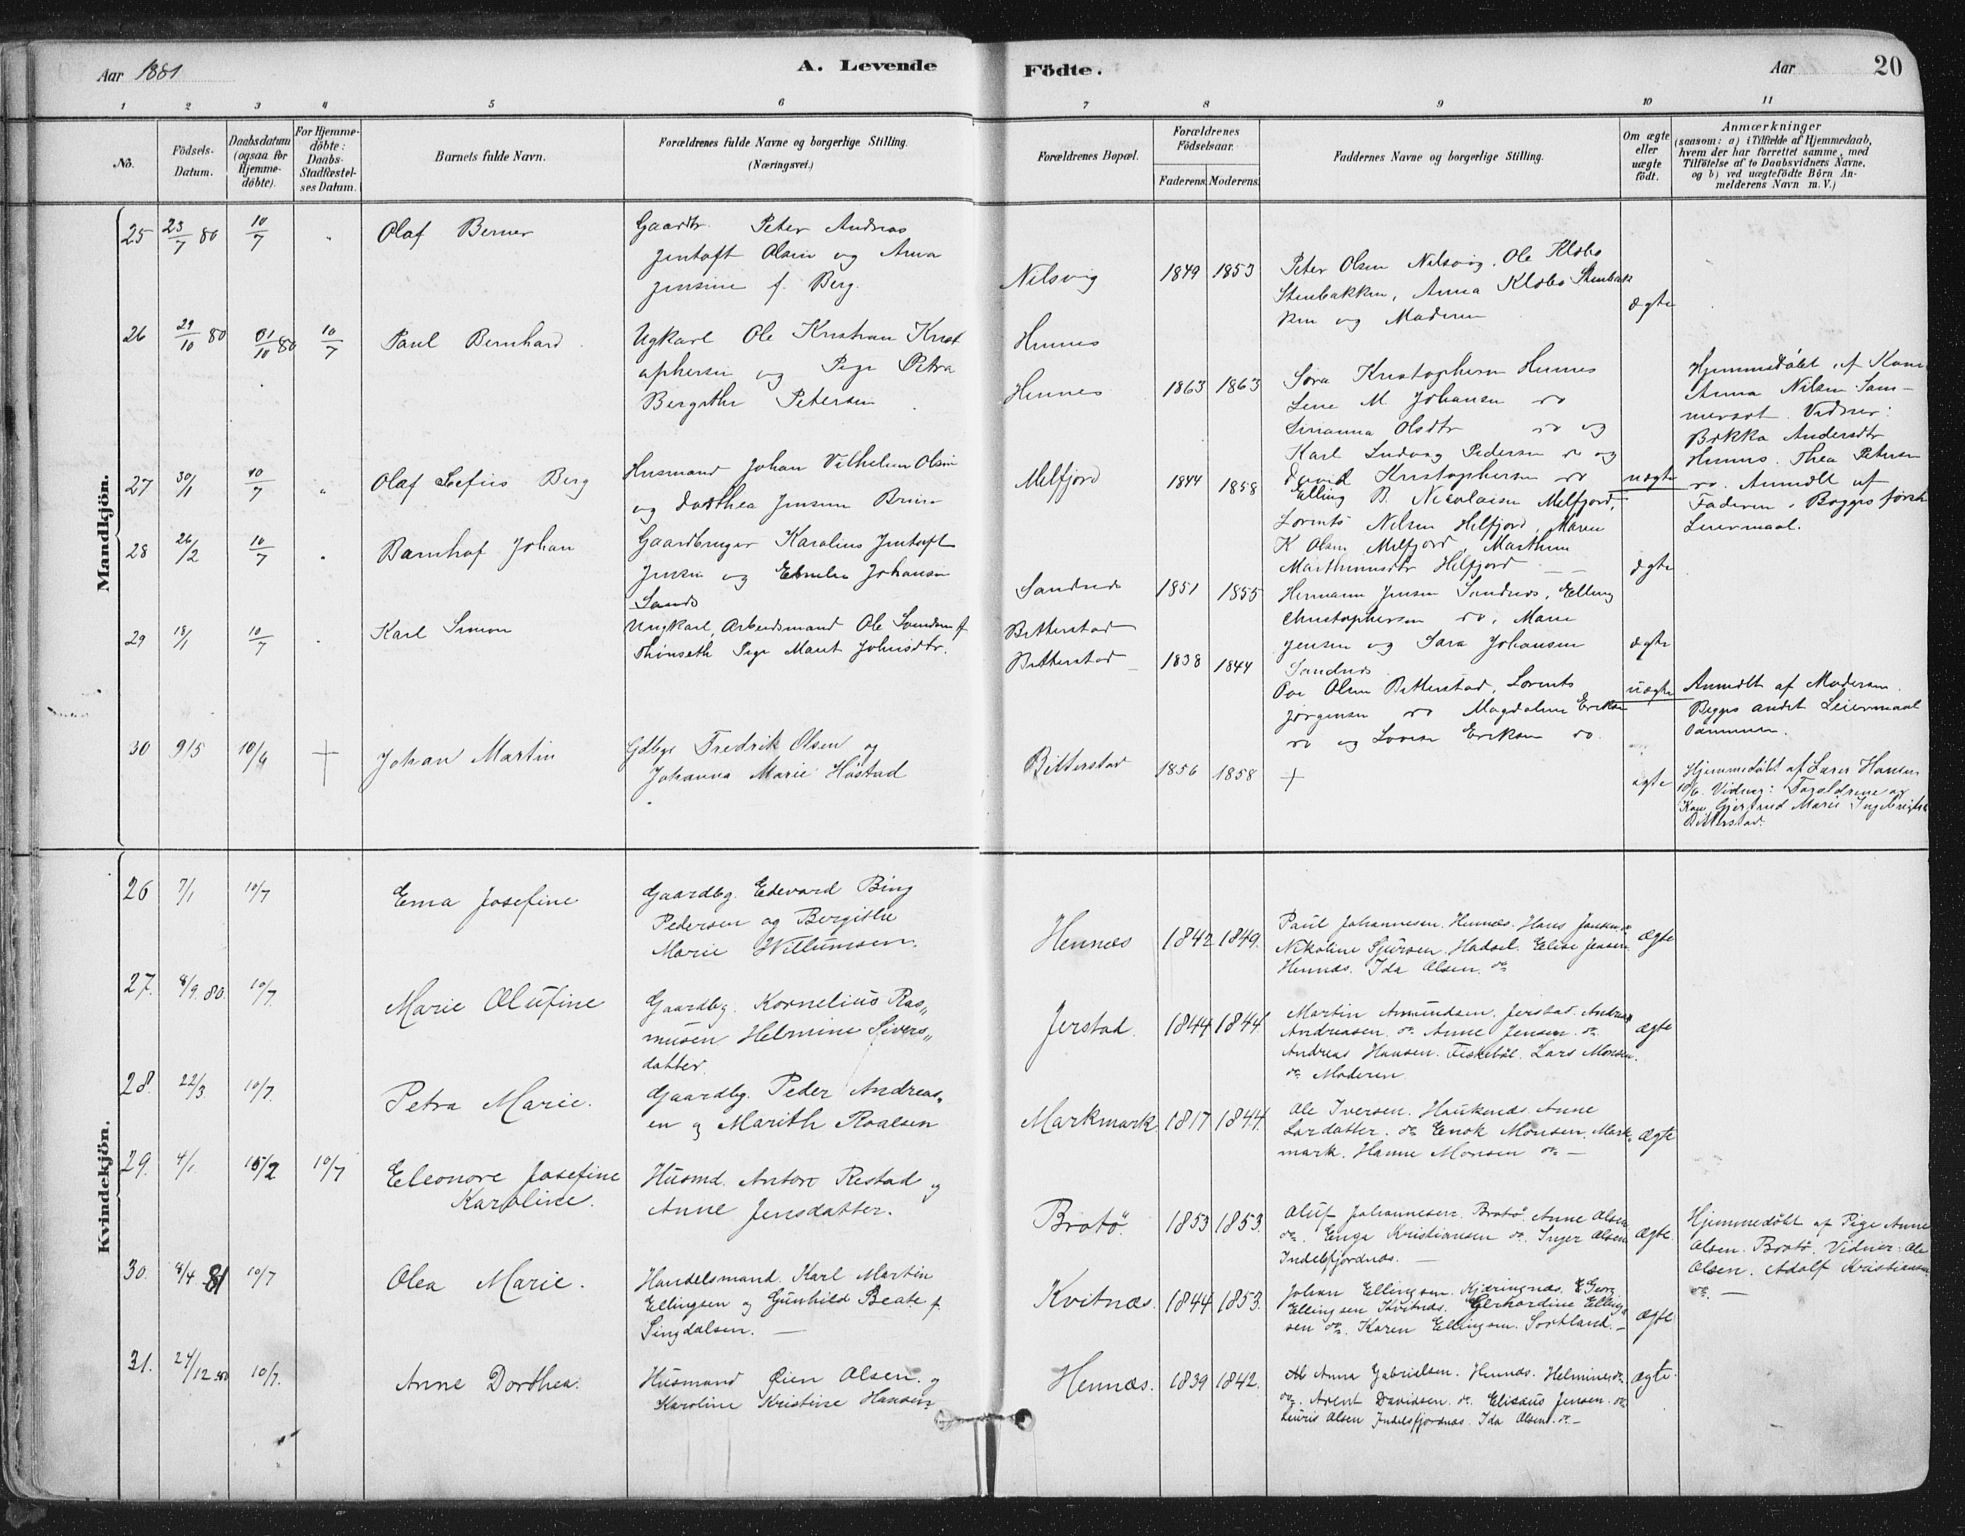 Aar 1881
A. Levende
Födte.
Aar
20
1 2 3 4 5 6 7 8 9 10 11
No.
Födsels-Datum.
Daabsdatum (ogsaa for Hjemme-döbte).
For Hjemme-döbte: Daabs-Stadfæstel-ses Datum.
Barnets fulde Navn.
Forældrenes fulde Navne og borgerlige Stilling.
(Næringsvei.)
Forældrenes Bopæl.
Forældrenes Födselsaar.
Faderens. Moderens.
Faddernes Navne og borgerlige Stilling.
Om ægte eller uægte födt.
Anmærkninger
(saasom: a) i Tilfælde af Hjemmedaab,
hvem der har forrettet samme, med
Tilföielse af to Daabsvidners Navne,
og b) ved uægtefödte Börn An-
melderens Navn m. V.)
Mandkjön.
25 23/7 80 10/7 Olaf Berner
Gaardbr. Peter Andreas
Jentoft Olsen og Anna
Jensine f. Berg.
Nilsvig 1849 1853
Peter Olsen Nilsvig, Ole Klæbo
Stenbakken, Anna Klæbo Stenbak
ken og Moderen
ægte
26 29/10 80 31/10 80 10/7 Paul Bernhard
Ugkarl Ole Kristian Krist
ophersen og Pige Petra
Bergithe Petersen
Hennes
Hennes 1863 1863
Sara Kristophersen Hennes
Lene M. Johansen do
Olsdtr do og
Karl Ludvig Pedersen do og
David Kristophersen do
uægte
Hjemmedöbt af Kone
Anna Nilsen Som-
merset. Vidner:
Andersdtr
Hennes. Thea Petersen
do. Anmeldt af
Faderen. Begges første
Leiermaal.
27 30/1 10/7 Olaf Sefius Berg
Husmand Johan Vilhelm Olsen
og Dorthea Jensen
Melfjord 1844 1858
Elling B. Nicolaisen Melfjord,
Lorents Nilsen Melfjord, Maren
K Olsen Melfjord, Marthine
Marthinusdtr Melfjord
ægte
28 26/2 10/7 Johan
Gaardbruger Karolius Jentoft
Jensen og Johansen
Sandnes 1851 1855
Hermann Jensen Sandnes, Elling
Christophersen do, Marie
Jensen og Sara Johansen
Sandnes
ægte
29 18/1 10/7 Karl Simon
Ungkarl, Arbeidsmand Ole Svendsen f.
Pige Marit Johnsdtr.
Bitterstad
Bitterstad 1838 1844
Olsen Bitterstad, Lorents
Jørgensen do Magdalene Eriksen
do og Lovise Eriksen do.
uægte
Anmeldt af Moderen.
Begges andet Leiermaal
sammen.
30 9/5 10/6 † Johan Martin
Gdbgr Fredrik Olsen og
Johanna Marie Høstad
Bitterstad 1856 1858 † ægte
Hjemmedøbt af Lærer Hansen
10/6. Vidner: Forældrene og
Kone Gjertrud Marie Ingebrigtsen
Bitterstad.
Kvindekjön.
26 7/1 10/7 Ema Josefine
Gaardbg. Edevard Bing
Pedersen og Bergithe
Marie Willumsen.
Hennæs 1842 1849.
Paul Johannesen. Hennæs. Hans Jensen do
Nikoline Sjursen. Hadsel. Elise Jensen.
Hennæs. Ida Olsen. do
ægte
27. 8/9 80. 10/7. Marie Olufine
Gaardbg. Kornelius Ras„
musen Helmine Sivers„
datter.
Jerstad. 1844 1844.
Martin Amundsen. Jerstad. Andreas
Andreasen. do Anne Jensen. do
Andreas Hansen. Fiskebøl. Lars Monsen.
do Moderen
ægte
28. 22/3. 10/7. Petra Marie.
Gaardbg. Peder Andreas„
en og Marith Roalsen
Markmark. 1817 1844.
Ole Iversen. Haukenæs. Anne
Larsdatter. do Enok Monsen. Mark„
mark. Hanne Monsen do —
ægte
29. 4/1. 15/2 10/7 Eleonore Josefine
Karoline.
Husmd. Anton Restad og
Anne Jensdatter.
Brotö. 1853 1853.
Oluf Johannesen. Brotö. Anne Olsen
do. Enga Kristiansen do. Inger Olsen
Indelsfjordnæs. —
ægte.
Hjemmedøbt af Pige Anne
Olsen. Brotö. Vidner: Ole
Olsen. Adolf Kristiansen
do. —
30. 8/4 81 10/7 Olea Marie.
Handelsmand. Karl Martin
Ellingsen og Gunhild Beate f.
Singdalsen. —
Kvitnæs. 1844 1853.
Johan Ellingsen. Kjæringnæs. Georg
Ellingsen Kvitnæs. Gerhardine Elling„
sen do. Karen Ellingsen. Sortland. —
ægte.
31. 24/12 80 10/7. Anne Dorthea.
Husmand Øien Olsen. og
Karoline Kristine Hansen
Hennæs. 1839 1842.
Anna Gabrielsen. Hennæs. Helmine do
do. Arent Davidsen. do. Elisæus Jensen. do
Olsen Indelsfjordnæs. Ida Olsen. do —
ægte.